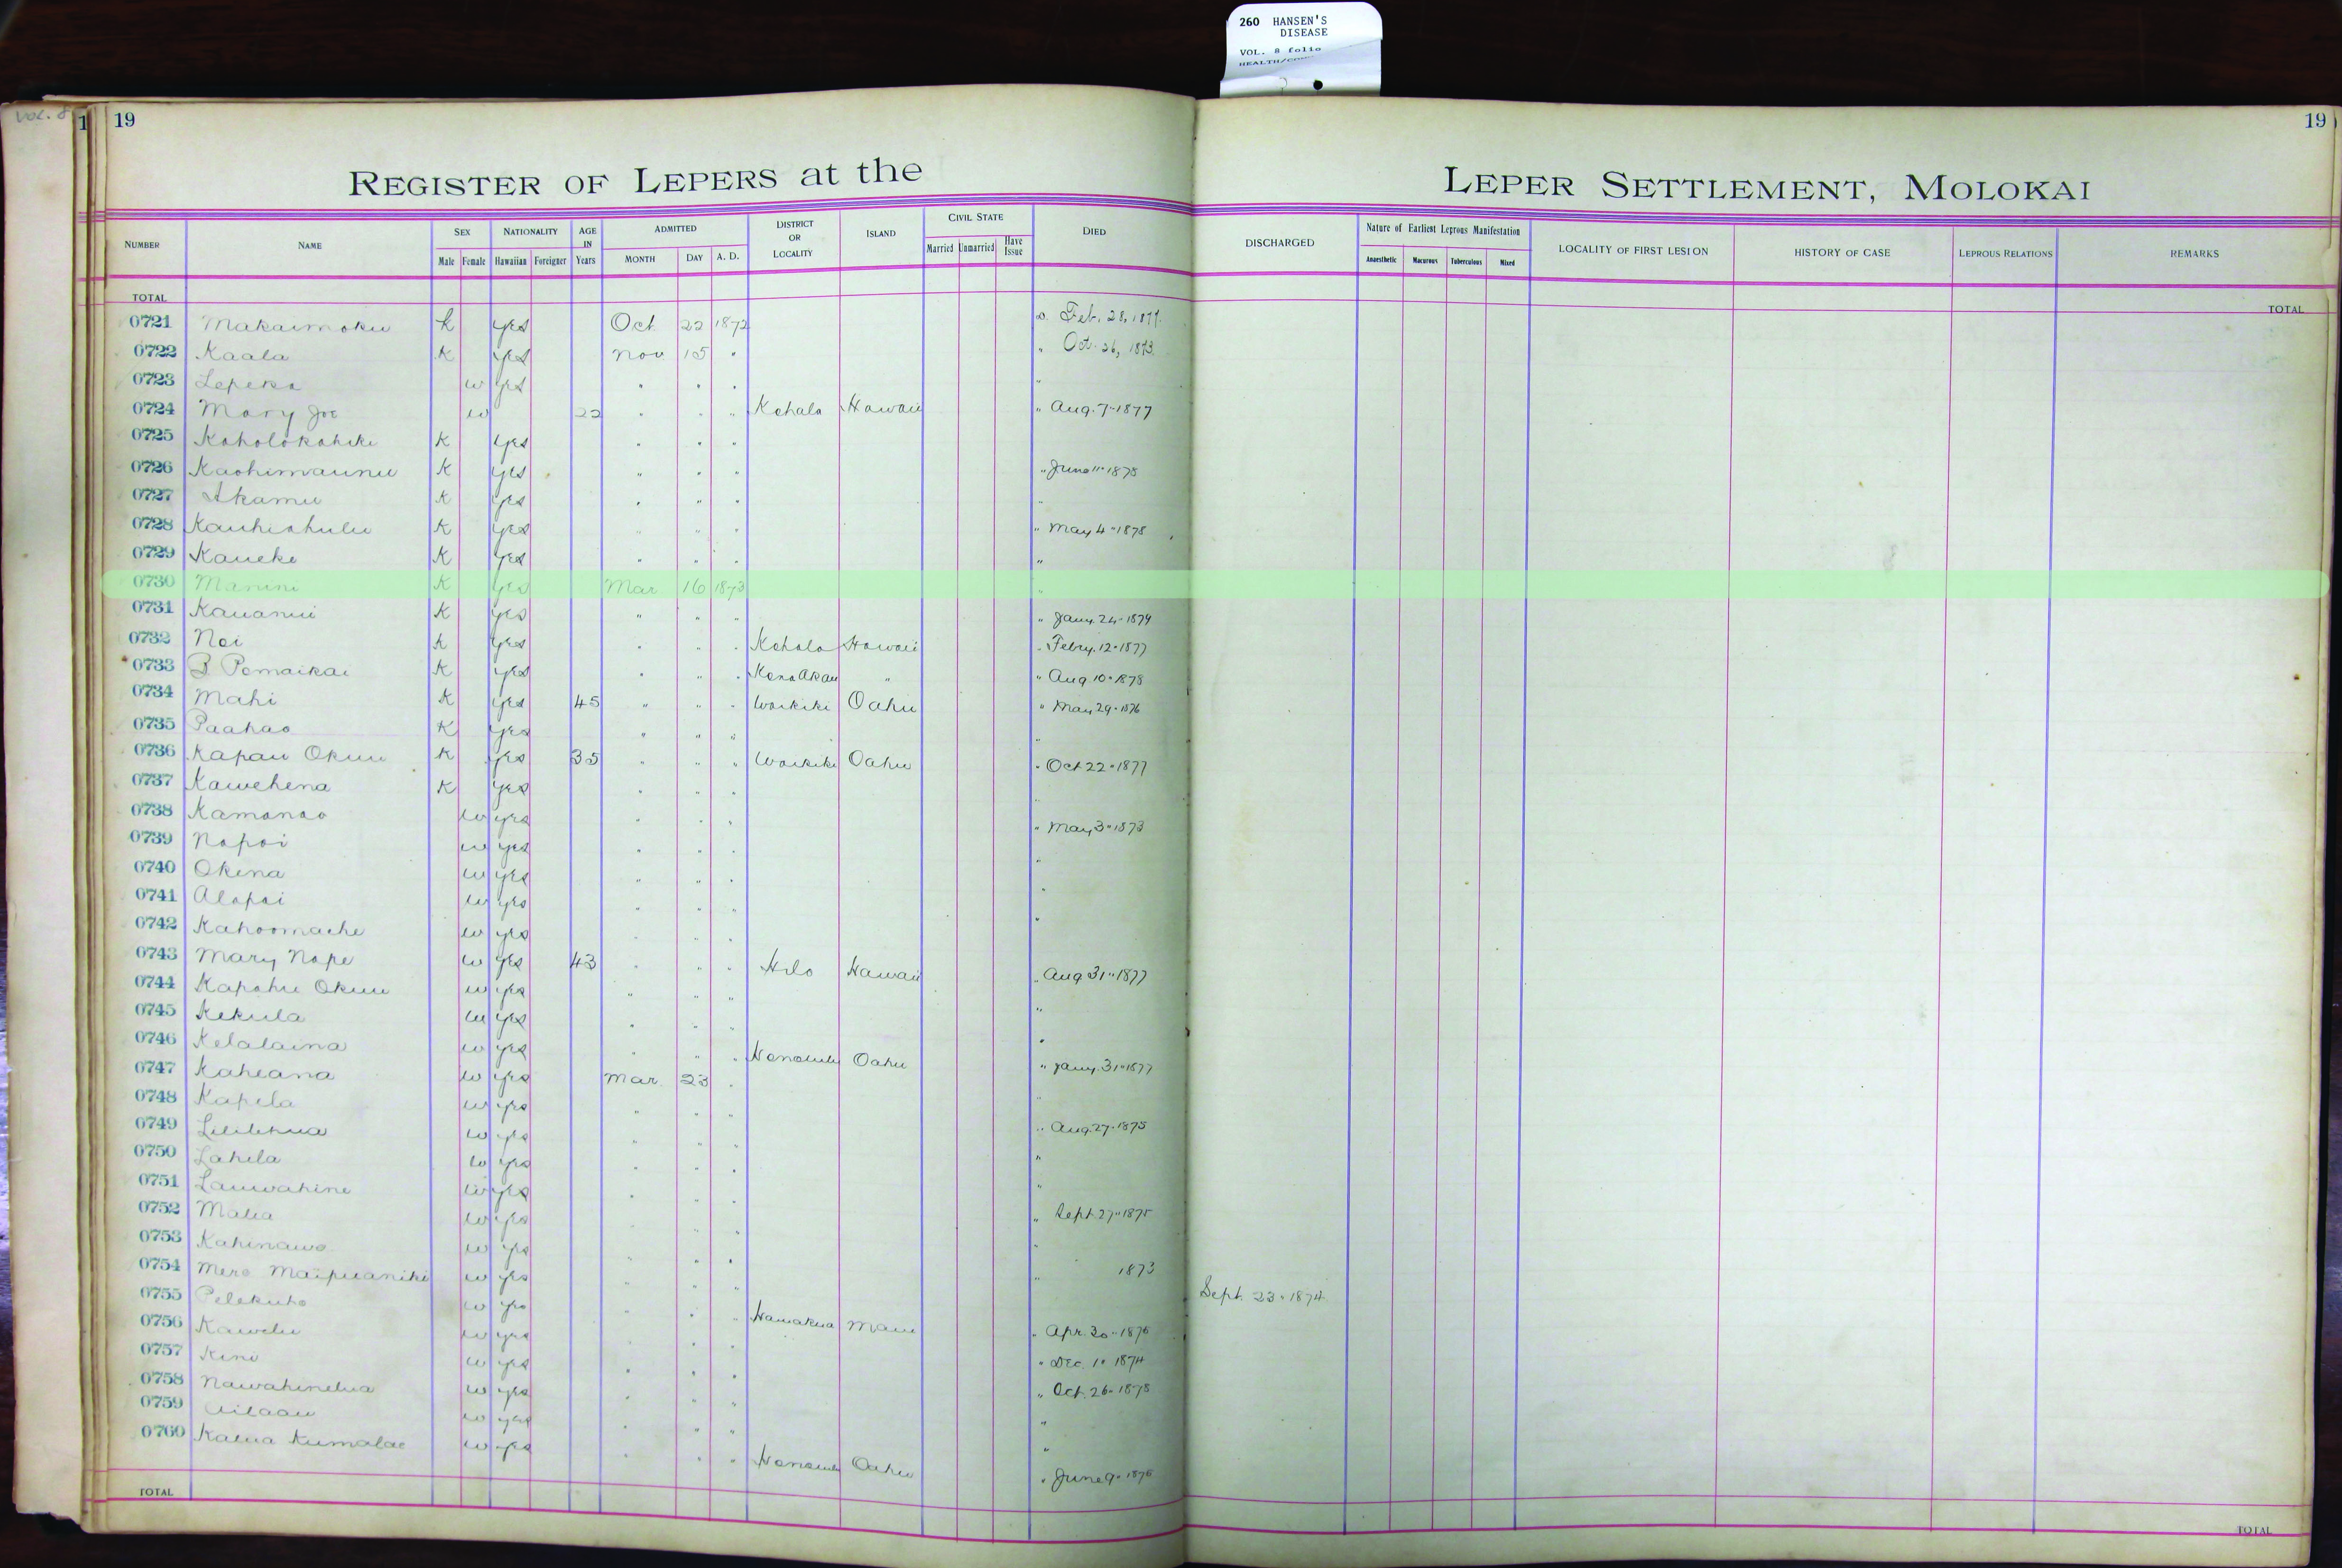 260 HANSEN'S
DISEASE
VOL. 8 folio
Vol. 8
1 19
19
REGISTER OF LEPERS at the LEPER SETTLEMENT, MOLOKAI
NUMBER NAME SEX Male Female NATIONALITY Hawaiian Foreigner AGE IN Years ADMITTED MONTH DAY A. D. DISTRICT OR LOCALITY ISLAND CIVIL STATE Married Unmarried Have Issue DIED DISCHARGED Nature of Earliest Leprous Manifestation Anaesthetic Macurous Tuberculous Mixed LOCALITY OF FIRST LESION HISTORY OF CASE LEPROUS RELATIONS REMARKS
TOTAL TOTAL
0721 Makaimoku K yes Oct 22 1872 Feb. 28, 1877.
0722 Kaala K yes Nov 15 " " Oct. 26, 1873.
0723 Lepeka w yes " " " "
0724 Mary Joe w 22 " " " Kohala Hawaii " Aug. 7 " 1877
0725 Koholokahiki K yes " " "
0726 Kaohimaunu K yes " " " " June 11 " 1878
0727 Akamu K yes " " " "
0728 Kauhiahulu K yes " " " " May 4 " 1878
0729 Kaueke K yes " " " "
0730 Manini K yes Mar 16 1873 "
0731 Kauanui K yes " " " " Jany. 24 " 1879
0732 Noi K yes " " " Kohala Hawaii " Febry. 12 " 1877
0733 B Pomaikai K yes " " " Kona Akau " " Aug 10 " 1878
0734 Mahi K yes 45 " " " Waikiki Oahu " May 29 " 1876
0735 Paahao K yes " " " "
0736 Kapau Okuu K yes 35 " " " Waikiki Oahu " Oct 22 " 1877
0737 Kawehena K yes " " " "
0738 Kamanao w yes " " " " May 3 " 1873
0739 Napoi w yes " " " "
0740 Okena w yes " " " "
0741 Alapai w yes " " " "
0742 Kahoomache w yes " " "
0743 Mary Nape w yes 43 " " " Hilo Hawaii " Aug 31 " 1877
0744 Kapahu Okuu w yes " " " "
0745 Kekula w yes " " " "
0746 Kelalaina w yes " " " Honolulu Oahu " Jany. 31 " 1877
0747 Kaheana w yes Mar. 23 " "
0748 Kapela w yes " " " " Aug. 27 " 1875
0749 Lililehua w yes " " " "
0750 Lahela w yes " " " "
0751 Lauwahine w yes " " " " Sept. 27 " 1875
0752 Malia w yes " " " "
0753 Kahinawe w yes " " " " 1873
0754 Mere Maipuaniki w yes " " " Sept. 23 " 1874
0755 Pelekuho w yes " " " Hamakua Maui " Apr. 30 " 1876
0756 Kawelu w yes " " " Dec. 1 " 1874
0757 Kini w yes " " " " Oct. 26 " 1878
0758 Nawahinelua w yes " " " "
0759 Ailaau w yes " " " "
0760 Kalua Kumalae w yes " " " Honolulu Oahu " June 9 " 1876
TOTAL TOTAL